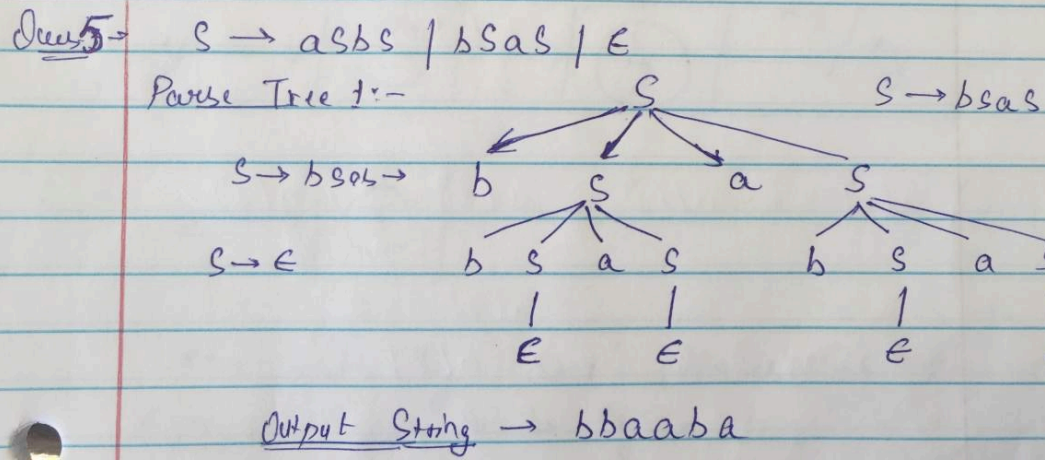 Ques 5 → S → aSbS | bSaS | ϵ
Parse Tree 1:- S S → bSaS
S → bSaS → b S a S
S → ϵ b S a S b S a
ϵ ϵ ϵ
Output String → bbaaba